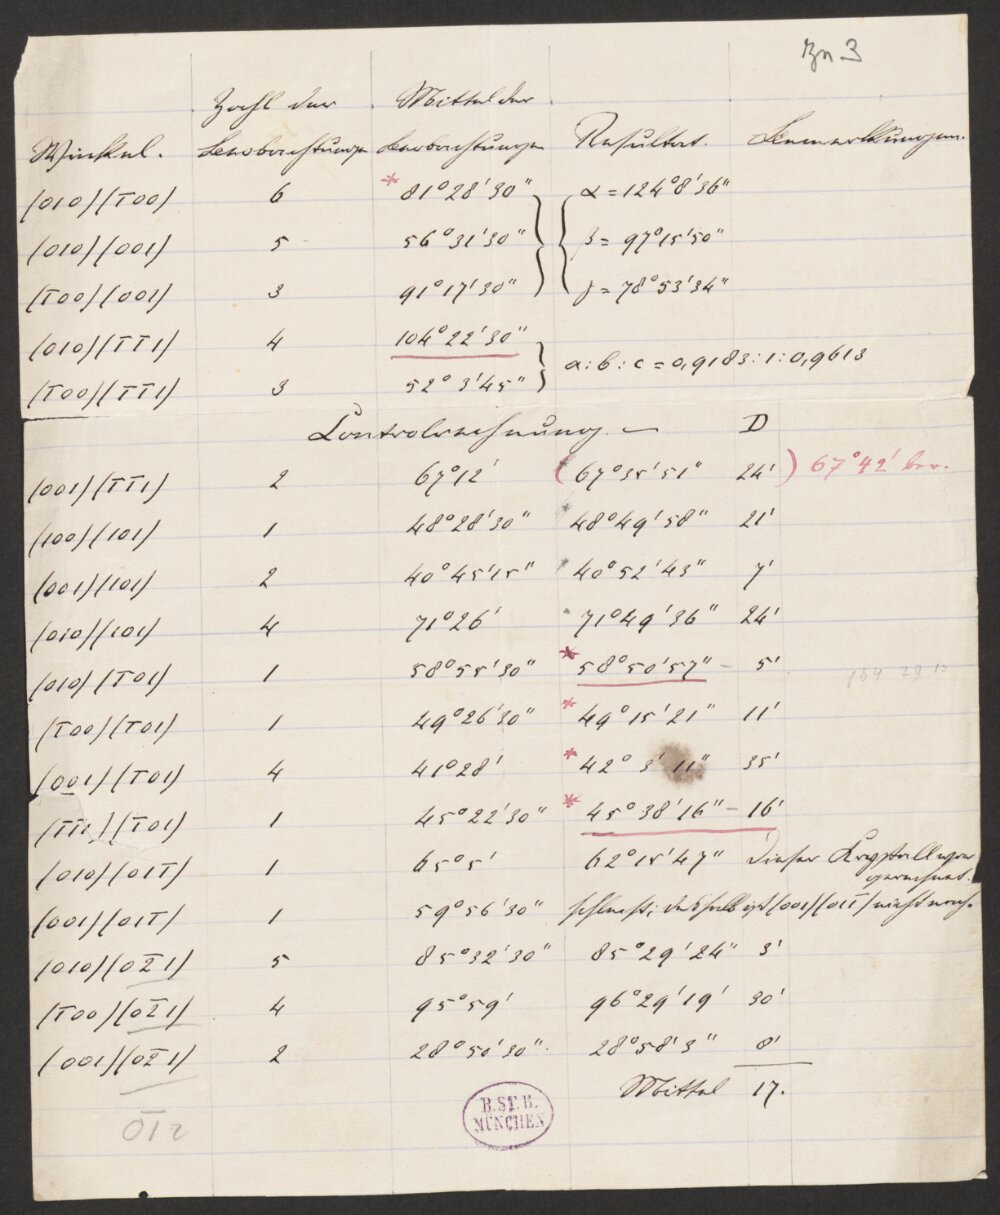 Zn 3
Zahl der Mittel der
Winkel. Beobachtungen Beobachtungen Resultat. Bemerkungen.
(010)(1̅00) 6 * 81° 28' 30" α = 124° 8' 36"
(010)(001) 5 56° 31' 30" β = 97° 15' 50"
(1̅00)(001) 3 91° 17' 30" γ = 78° 53' 34"
(010)(1̅1̅1) 4 104° 22' 30"
a : b : c = 0,9183 : 1 : 0,9613
(1̅00)(1̅1̅1) 3 52° 3' 45"
Controlrechnung. — D
(001)(1̅1̅1) 2 67° 12' (67° 35' 51" 24') 67° 42' ber.
(100)(101) 1 48° 28' 30" 48° 49' 58" 21'
(001)(101) 2 40° 45' 15" 40° 52' 43" 7'
(010)(101) 4 71° 26' 71° 49' 36" 24'
(010)(1̅01) 1 58° 55' 30" * 58° 50' 57" – 5'
104 29 10
(1̅00)(1̅01) 1 49° 26' 30" * 49° 15' 21" 11'
(001)(1̅01) 4 41° 28' * 42° 3' 11" 35'
(1̅1̅1)(1̅01) 1 45° 22' 30" * 45° 38' 16" – 16'
(010)(011̅) 1 65° 5' 62° 15' 47" Dieser Krystall war
gerechnet.
(001)(011̅) 1 59° 56' 30" schlecht; deshalb ist (001)(011̅) nicht nach-
(010)(02̅1) 5 85° 32' 30" 85° 29' 24" 3'
(1̅00)(02̅1) 4 95° 59' 96° 29' 19' 30'
(001)(02̅1) 2 28° 50' 30" 28° 58' 3" 8'
Mittel 17.
01̅2
B.ST.B.
MÜNCHEN